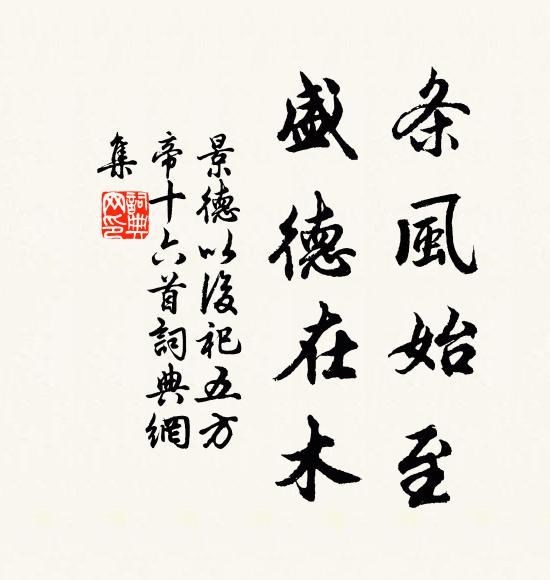 条風始至
盛德在木
景德以後祀五方
帝十六首詞典網
集
詞典網印